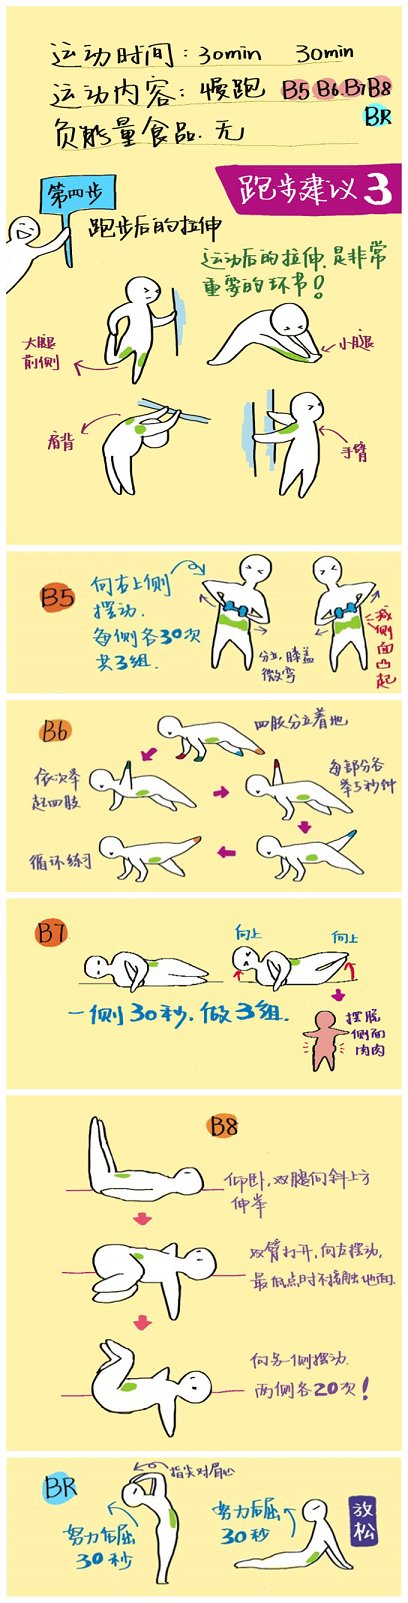 运动时间：30min 30min
运动内容：慢跑 B5 B6 B7 B8
BR
负能量食品：无
跑步建议3
第四步
跑步后的拉伸
运动后的拉伸，是非常
重要的环节！
大腿
前侧
小腿
肩背
手臂
B5
向右上侧
摆动．
每侧各30次
共3组．
分立，膝盖
微弯
减侧面凸起
B6
四肢分立着地
依次举
起四肢
每部分各
举5秒钟
循环练习
B7
向上
向上
一侧30秒，做3组．
摆脱
侧面
肉肉
B8
仰卧，双腿向斜上方
伸举
双臂打开，向左摆动，
最低点时不接触地面．
向另一侧摆动．
两侧各20次！
BR
指尖对眉心
努力后屈
30秒
努力后屈
30秒
放松